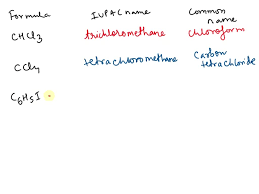 Formula IUPAC name Common name
CHCl3 trichloromethane chloroform
CCl4 tetrachloromethane Carbon tetrachloride
C6H5I -